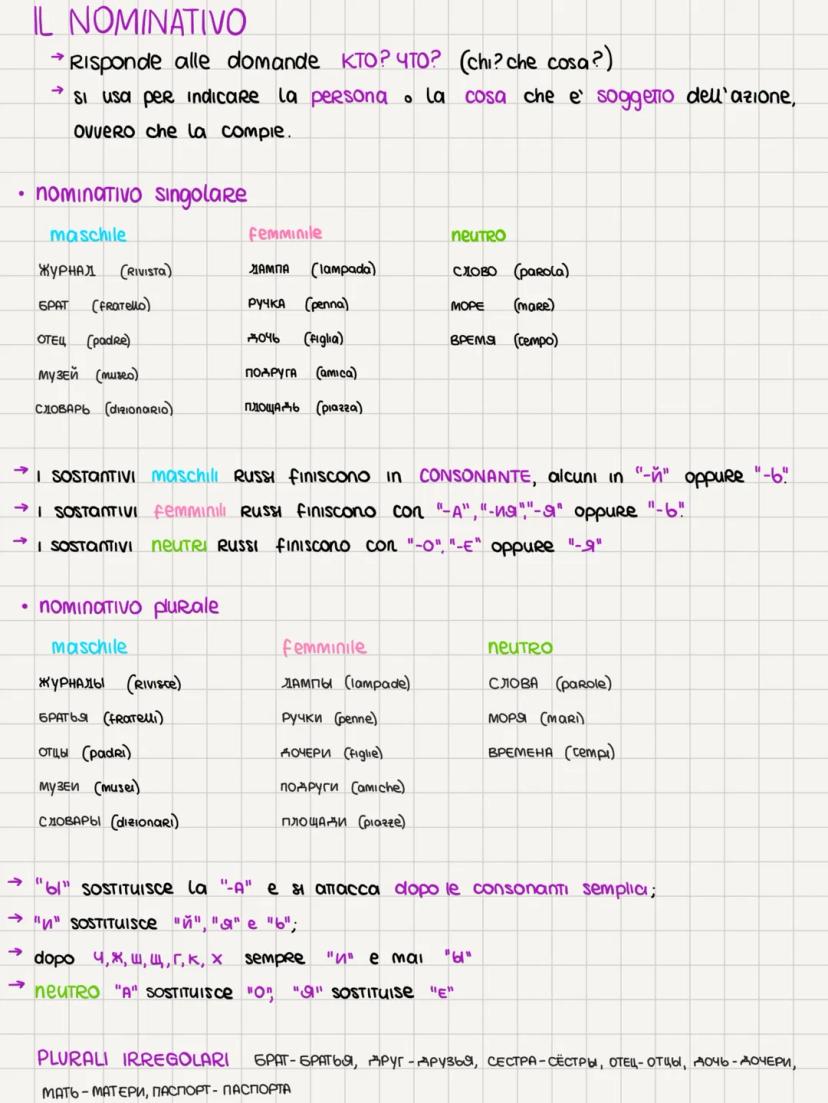 IL NOMINATIVO
→ Risponde alle domande КТО? ЧТО? (chi? che cosa?)
→ si usa per indicare la persona o la cosa che e' soggetto dell'azione,
ovvero che la compie.
• nominativo singolare
maschile femminile neutro
ЖУРНАЛ (rivista) ЛАМПА (lampada) СЛОВО (parola)
БРАТ (fratello) РУЧКА (penna) МОРЕ (mare)
ОТЕЦ (padre) ДОЧЬ (figlia) ВРЕМЯ (tempo)
МУЗЕЙ (museo) ПОДРУГА (amica)
СЛОВАРЬ (dizionario) ПЛОЩАДЬ (piazza)
→ I sostantivi maschili russi finiscono in CONSONANTE, alcuni in "-й" oppure "-ь".
→ I sostantivi femminili russi finiscono con "-А", "-ия", "-я" oppure "-ь".
→ I sostantivi neutri russi finiscono con "-О", "-Е" oppure "-Я"
• nominativo plurale
maschile femminile neutro
ЖУРНАЛЫ (riviste) ЛАМПЫ (lampade) СЛОВА (parole)
БРАТЬЯ (fratelli) РУЧКИ (penne) МОРЯ (mari)
ОТЦЫ (padri) ДОЧЕРИ (figlie) ВРЕМЕНА (tempi)
МУЗЕИ (musei) ПОДРУГИ (amiche)
СЛОВАРЫ (dizionari) ПЛОЩАДИ (piazze)
→ "Ы" sostituisce la "-А" e si attacca dopo le consonanti semplici;
→ "И" sostituisce "Й", "Я" e "Ь";
→ dopo Ч, Ж, Ш, Щ, Г, К, Х sempre "И" e mai "Ы"
→ NEUTRO "А" sostituisce "О", "Я" sostituise "Е"
PLURALI IRREGOLARI БРАТ - БРАТЬЯ, ДРУГ - ДРУЗЬЯ, СЕСТРА - СЁСТРЫ, ОТЕЦ - ОТЦЫ, ДОЧЬ - ДОЧЕРИ,
МАТЬ - МАТЕРИ, ПАСПОРТ - ПАСПОРТА